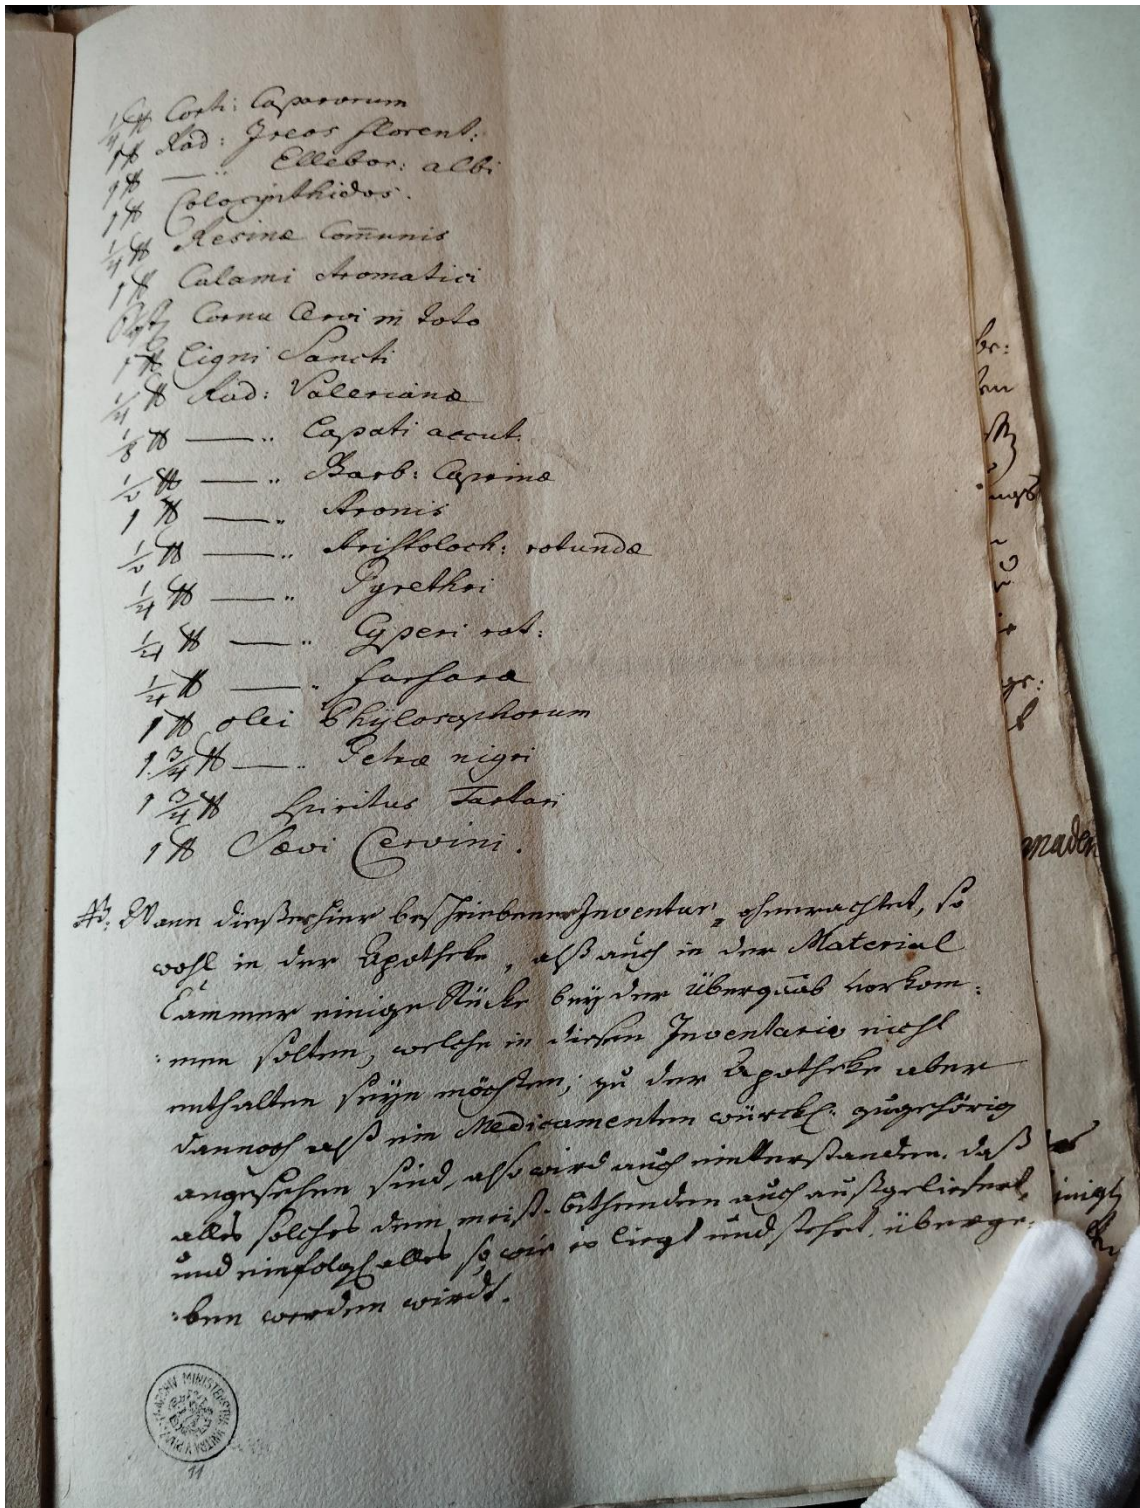 1/4 ℔ Corti: Capparorum
1 ℔ Rad: Ireos florent:
1 ℔ —" Ellebor: albi
1 ℔ Colocynthidos.
1/4 ℔ Resinæ Com̄unis
1 ℔ Calami Aromatici
Cornu Cervi in toto
1 ℔ Ligni Sancti
1/4 ℔ Rad: Valerianæ
1/8 ℔ —" Lapati accut:
1/2 ℔ —" Barb: Caprinæ
1 ℔ —" Aronis
1/2 ℔ —" Aristoloch: rotundæ
1/4 ℔ —" Pyrethri
1/4 ℔ —" Cyperi rot:
1/4 ℔ —" farfaræ
1 ℔ olei Phÿlosophorum
1 3/4 ℔ —" Petræ nigri
1 3/4 ℔ Spiritus Tartari
1 ℔ Sævi Cervini.
NB: Wann dießer hier beschriebener Inventur, ohnerachtet, so
wohl in der Apotheke, alß auch in der Material
Cammer einige Stücke beÿ der Übergaab vorkom:
:men solten, welche in diesen Inventario nicht
enthalten seÿn möchten; zu der Apotheke aber
dannoch alß ein Medicamenten würckl: zugehörig
angesehen sind, also wird auch einverstanden, daß
alles solches dem meist-biethenden auch außgeliefert,
und einfolgl. alles so, wie es liegt und stehet, überge:
:ben werden wirdt.
maden
ARCHIV MINISTERSTVA VNITRA V PRAZE
11